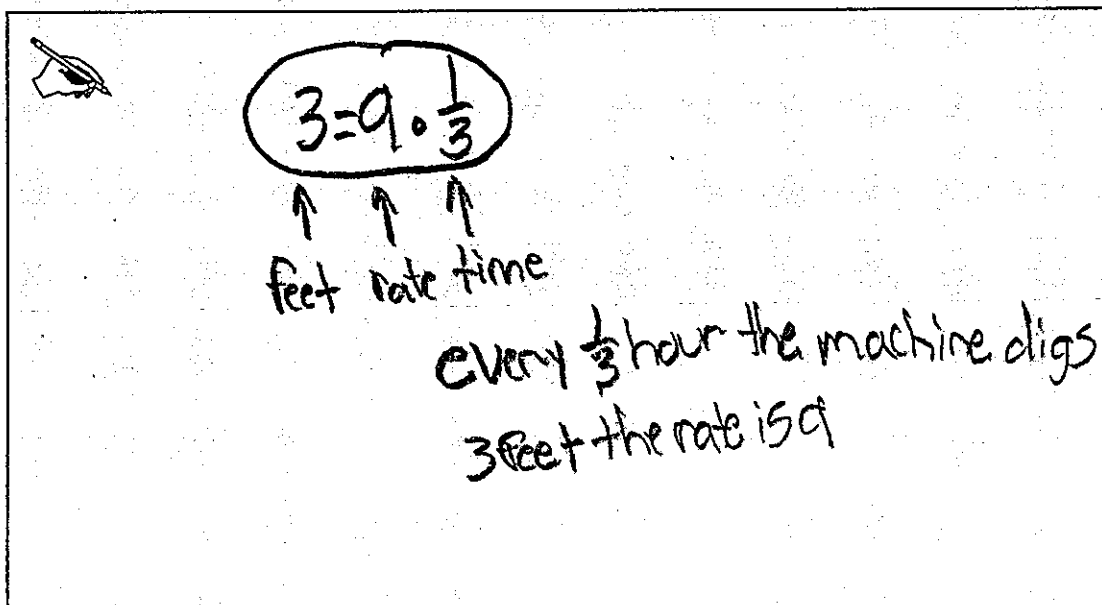 3=9·1/3
↑ ↑ ↑
feet rate time
every 1/3 hour the machine digs
3 feet the rate is 9